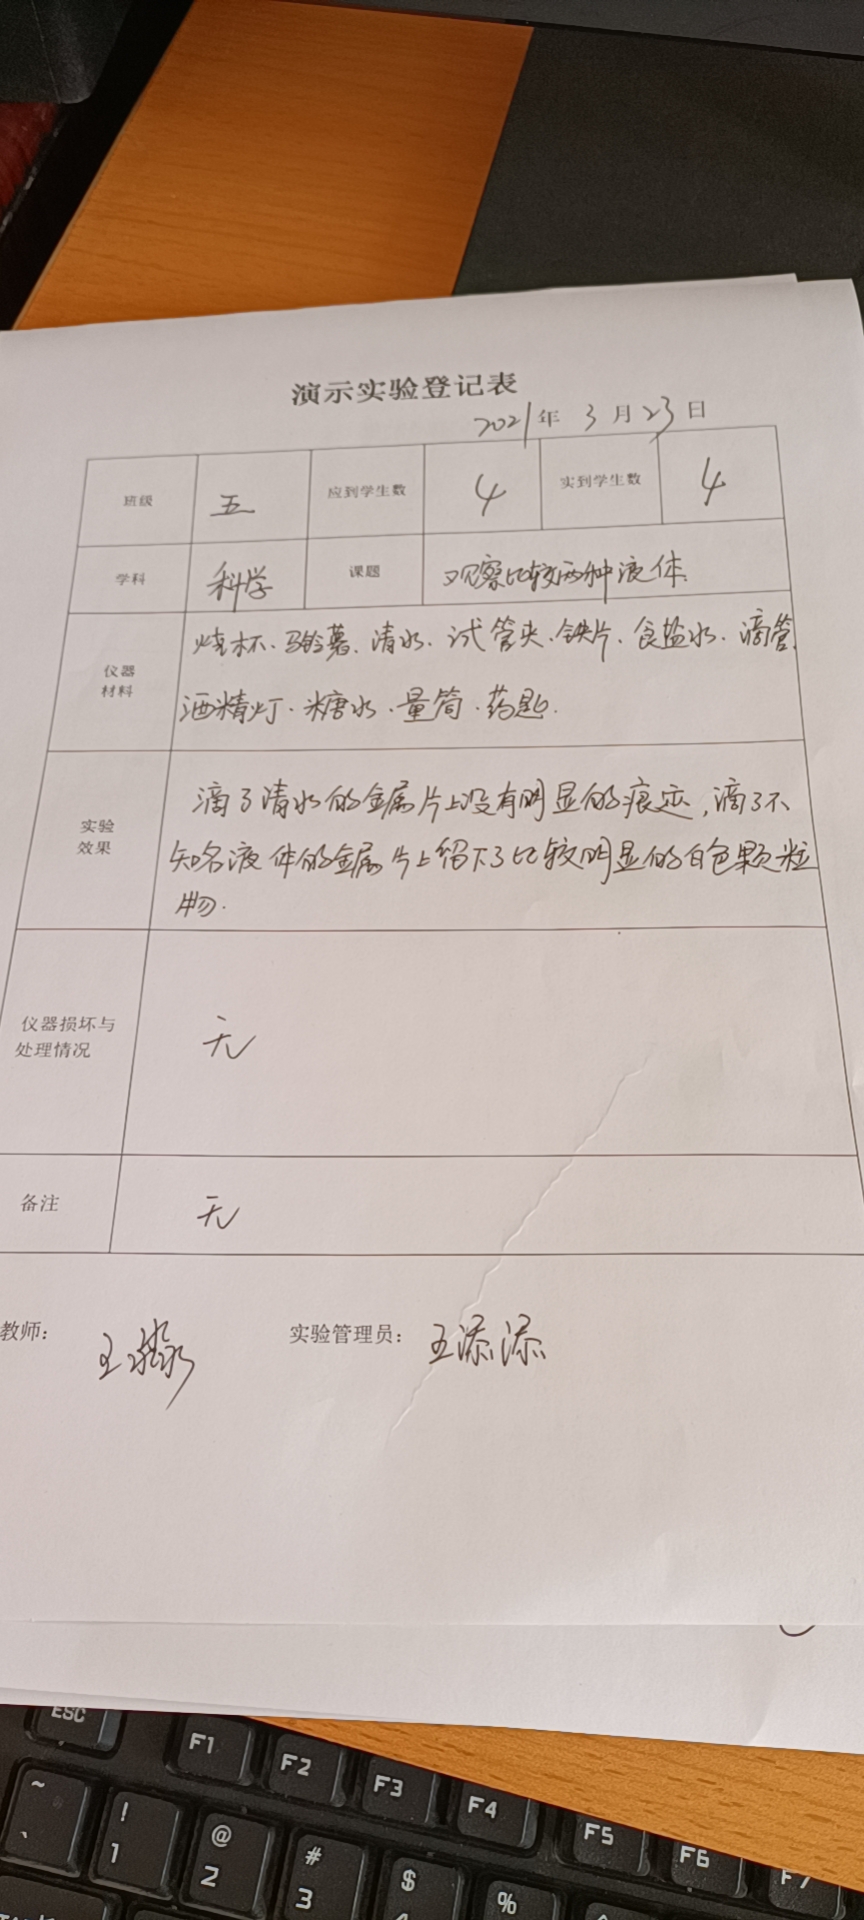 演示实验登记表
2021年 3月23日
班级 五 应到学生数 4 实到学生数 4
学科 科学 课题 观察比较两种液体.
仪器
材料
烧杯、马铃薯、清水、试管夹、铁片、食盐水、滴管
酒精灯、糖水、量筒、药匙.
实验
效果
滴了清水的金属片上没有明显的痕迹,滴了不
知名液体的金属片上留下了比较明显的白色颗粒
物.
仪器损坏与
处理情况
无
备注 无
教师: 王 实验管理员: 王添添
ESC F1 F2 F3 F4 F5 F6 F7
~ ! @ # $ %
` 1 2 3 4